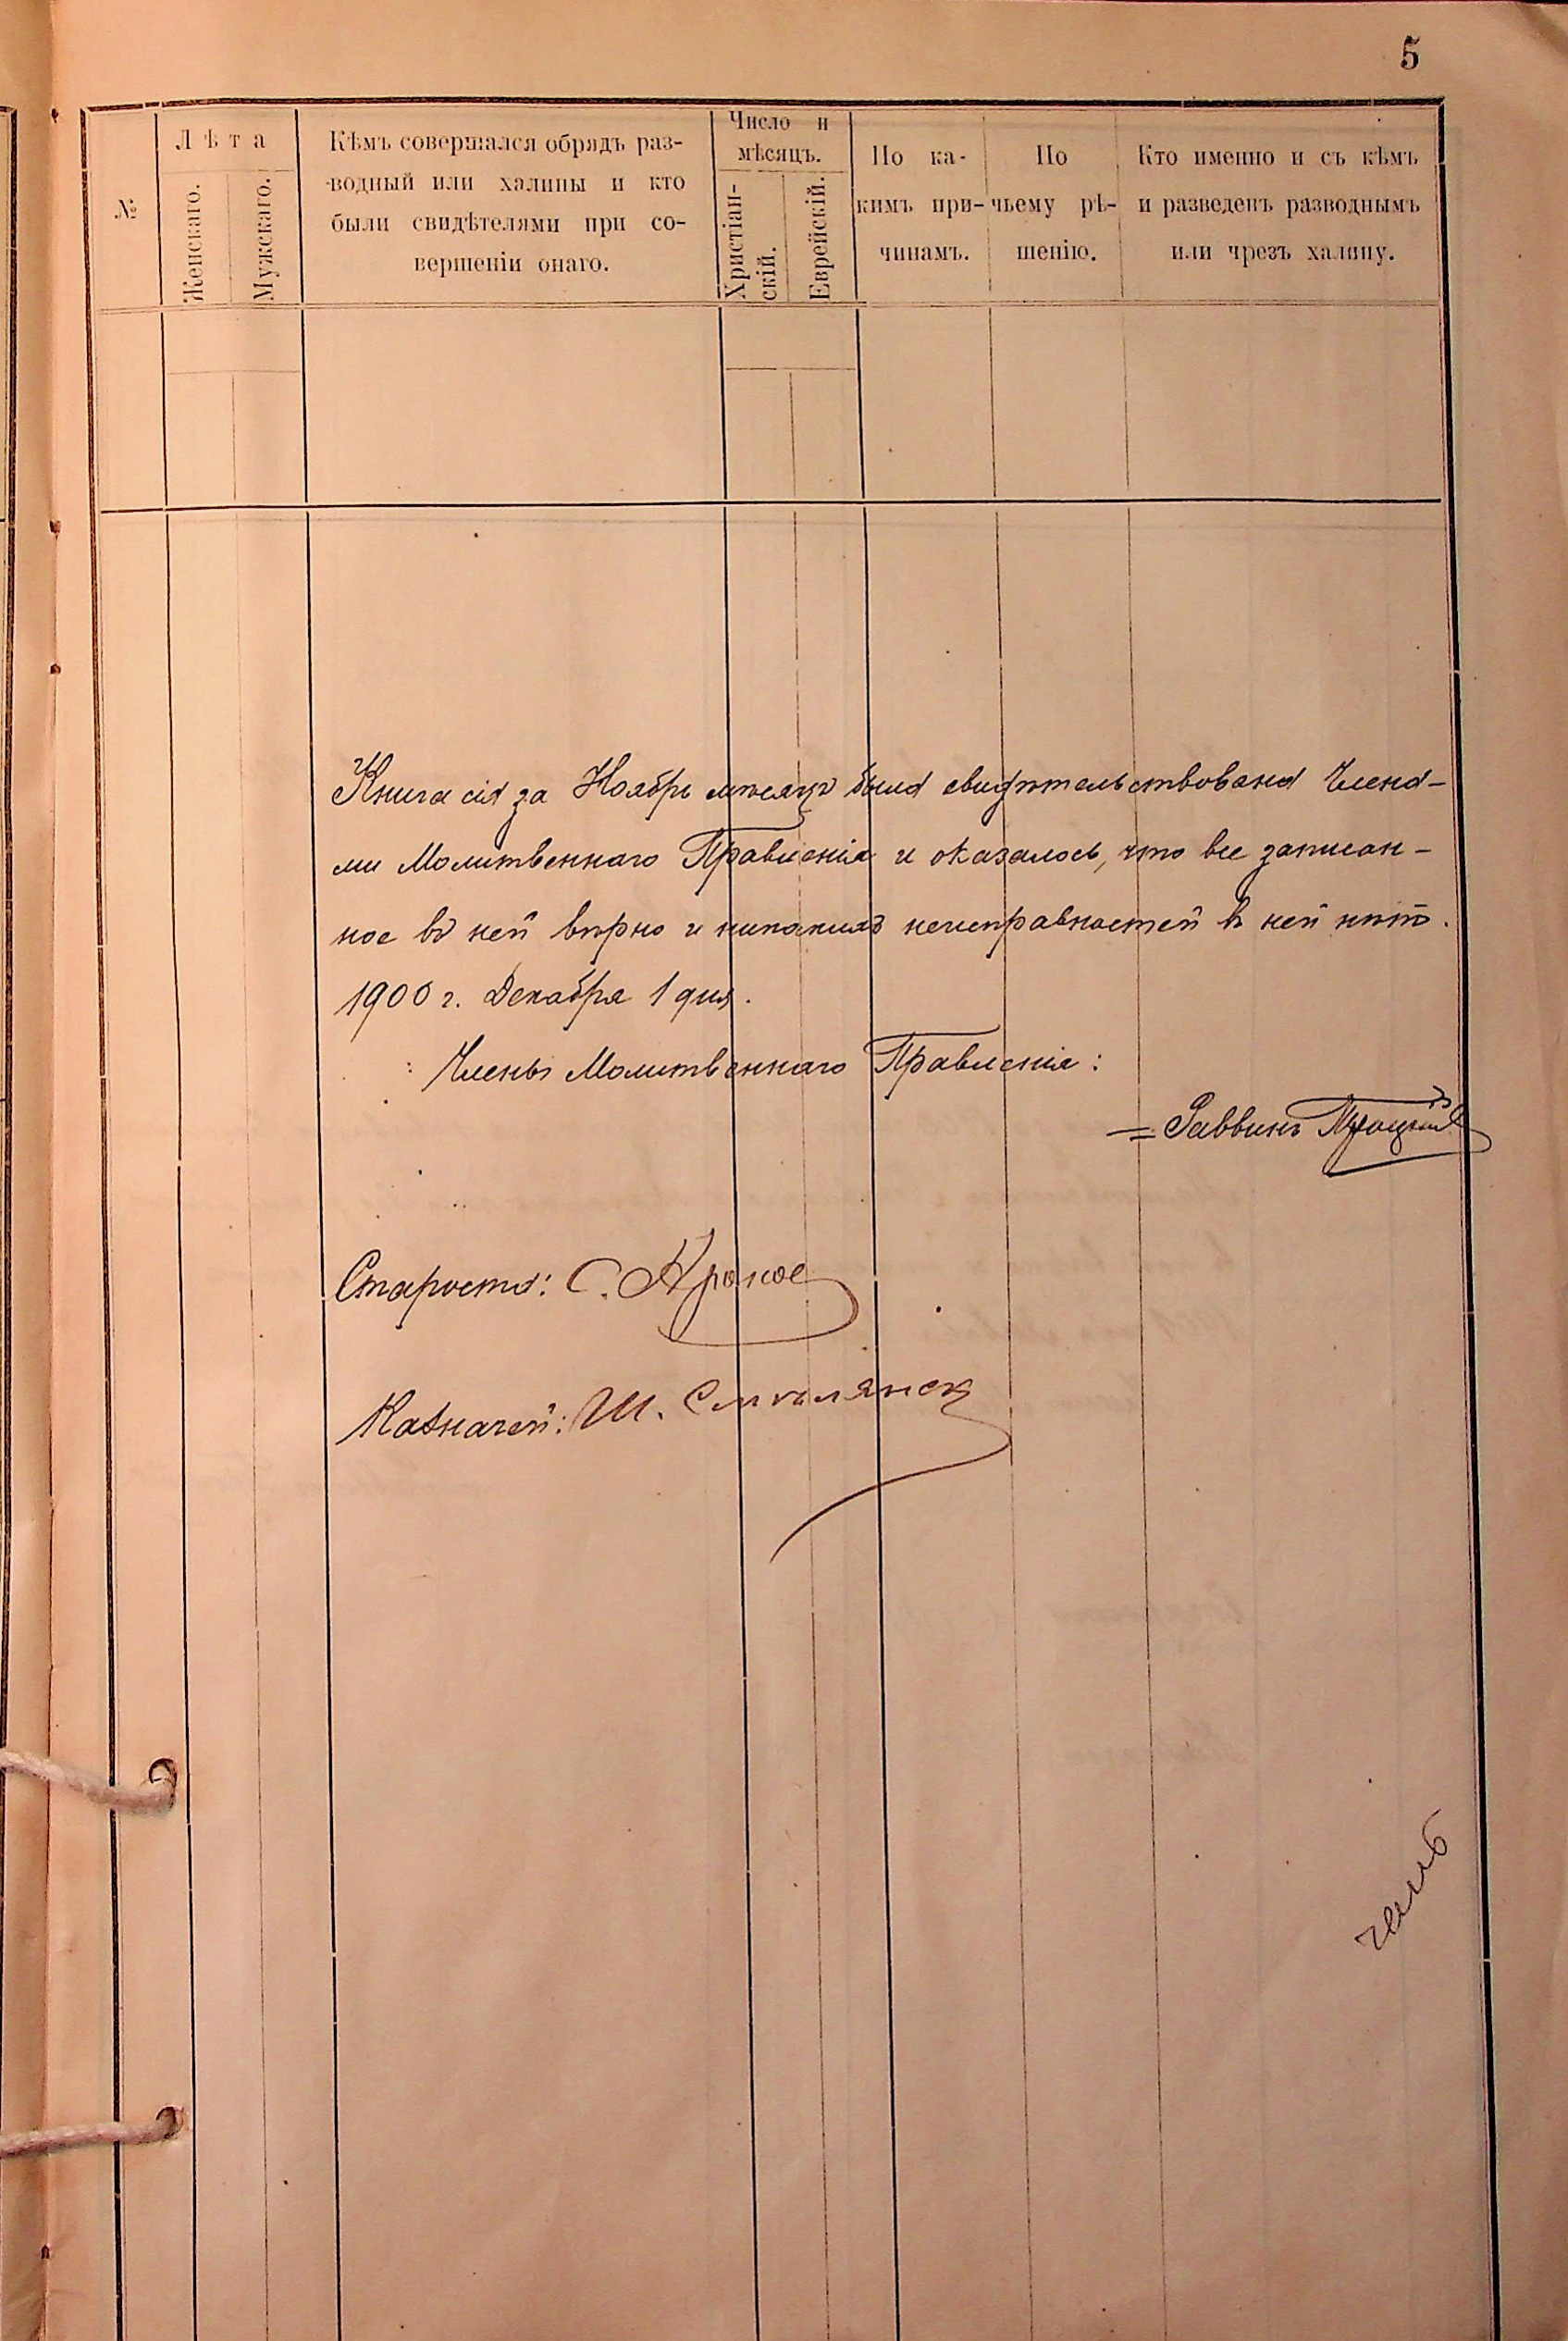 5
№
Лѣта
Женскаго.
Мужскаго.
Кѣмъ совершался обрядъ раз-
водный или халицы и кто
были свидѣтелями при со-
вершеніи онаго.
Число и
мѣсяцъ.
Христіан-
скій.
Еврейскій.
По ка-
кимъ при-
чинамъ.
По
чьему рѣ-
шенію.
Кто именно и съ кѣмъ
и разведенъ разводнымъ
или чрезъ халицу.
Книга сія за Ноябрь мѣсяцъ была свидѣтельствована Члена-
ми Молитвеннаго Правленія и оказалось, что все записан-
ное въ ней вѣрно и никакихъ неисправностей въ ней нѣтъ.
1900 г. Декабря 1 дня.
Члены Молитвеннаго Правленія:
Раввинъ
Староста: С.
Казначей: Ш.